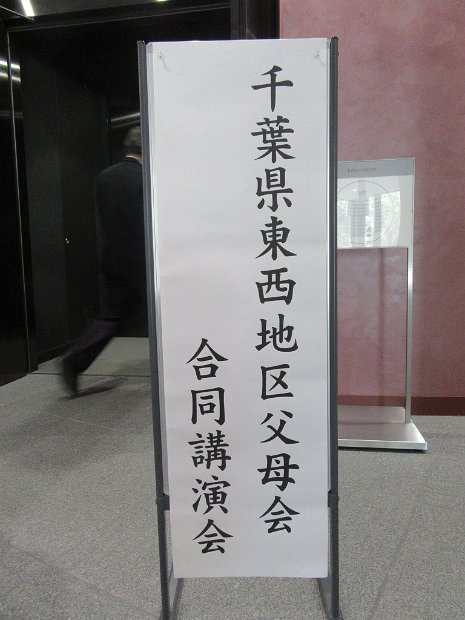 千葉県東西地区父母会
合同講演会
Information